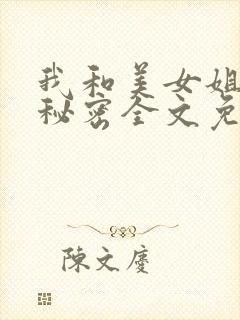 我和美女姐
秘密全文免
陳文慶